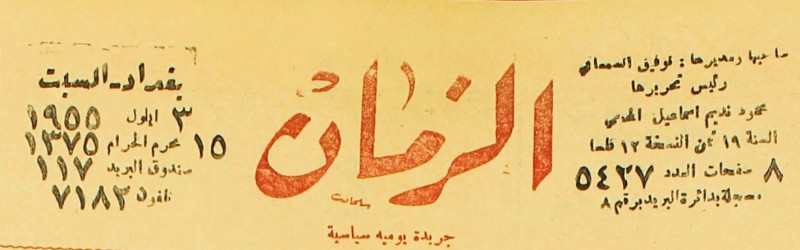 صاحبها ومديرها : توفيق السمعاني
رئيس تحريرها
محمود نديم اسماعيل
السنة ١٩ ثمن النسخة ١٢ فلسا
٨ صفحات العدد ٥٤٢٧
مسجلة بدائرة البريد برقم ٨
الزمان
جريدة يوميه سياسية
بغداد - السبت
٣ ايلول ١٩٥٥
١٥ محرم الحرام ١٣٧٥
صندوق البريد ١١٧
تلفون ٧١٨٣